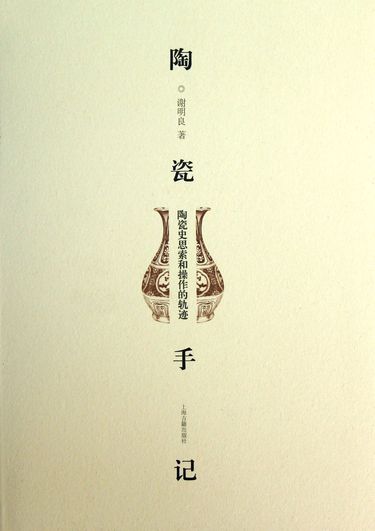 陶瓷手记
谢明良 著
陶瓷史思索和操作的轨迹
上海古籍出版社